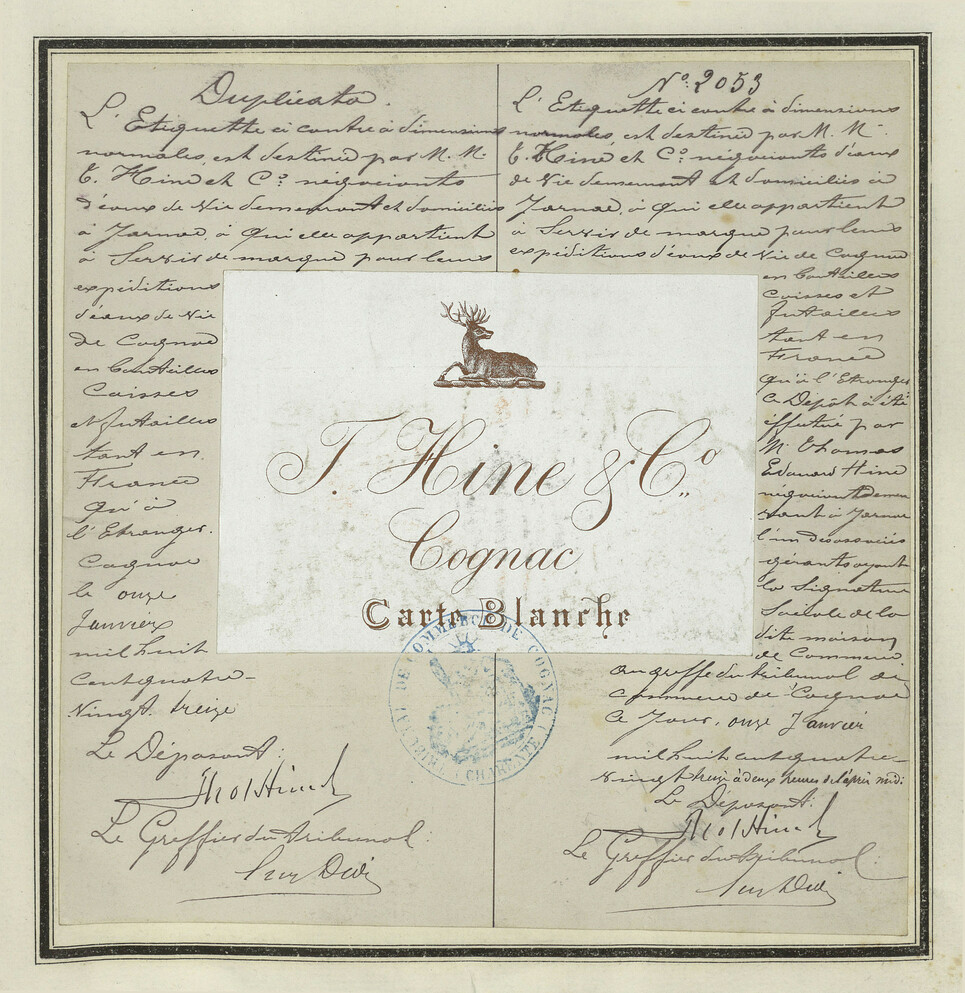 Duplicata.
L'Etiquette ci contre à dimensions
normales, est destinée par M. M.
T. Hine et Cº. négociants
d'eaux de Vie demeurant et domiciliés
à Jarnac, à qui elle appartient
à Servir de marque pour leurs
expéditions
d'eaux de Vie
de Cognac
en bouteilles
Caisses
et futailles
tant en
France
qu'à
l'Etranger.
Cognac
le onze
Janvier
mil huit
cent quatre-
Vingt treize
Le Déposant:
Le Greffier du tribunal:
Nº. 2053
L'Etiquette ci contre à dimensions
normales, est destinée par M. M.
T. Hine et Cº. négociants d'eaux
de Vie demeurant et domiciliés à
Jarnac, à qui elle appartient
à Servir de marque pour leurs
expéditions d'eaux de Vie de Cognac
en bouteilles
Caisses et
futailles
tant en
France
qu'à l'Etranger
Ce Dépôt à été
effectué par
M. Thomas
Edouard Hine
négociant demeu
rant à Jarnac
l'un des associés
gérants ayant
la Signature
Sociale de la
dite maison
de Commerce
au greffe du tribunal de
Commerce de Cognac
Ce Jour, onze Janvier
mil huit cent quatre-
Vingt treize à deux heures de l'après midi.
Le Déposant:
Le Greffier du tribunal:
T. Hine & Cº
Cognac
Carte Blanche
TRIBUNAL DE COMMERCE DE COGNAC
(CHARENTE)